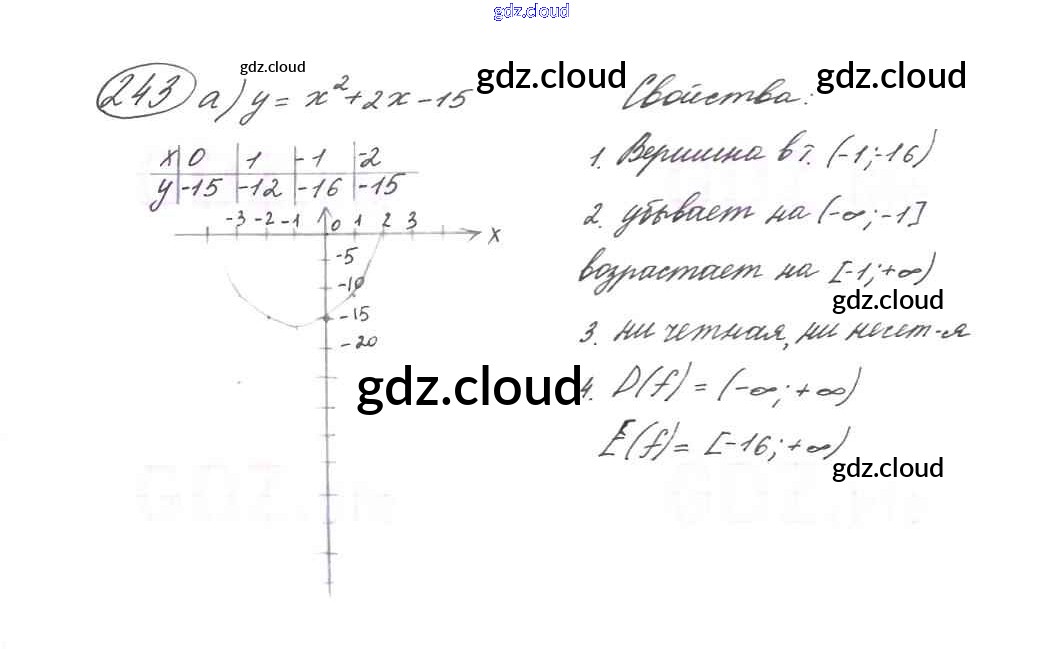 gdz.cloud
243 а) y = x² + 2x - 15
gdz.cloud
gdz.cloud
gdz.cloud
x | 0 | 1 | -1 | -2
y | -15 | -12 | -16 | -15
-3 -2 -1 0 1 2 3 x
-5
-10
-15
-20
gdz.cloud
Свойства:
1. Вершина в т. (-1; -16)
2. убывает на (-∞; -1]
возрастает на [-1; +∞)
gdz.cloud
3. ни четная, ни нечет-я
4. D(f) = (-∞; +∞)
E(f) = [-16; +∞)
gdz.cloud